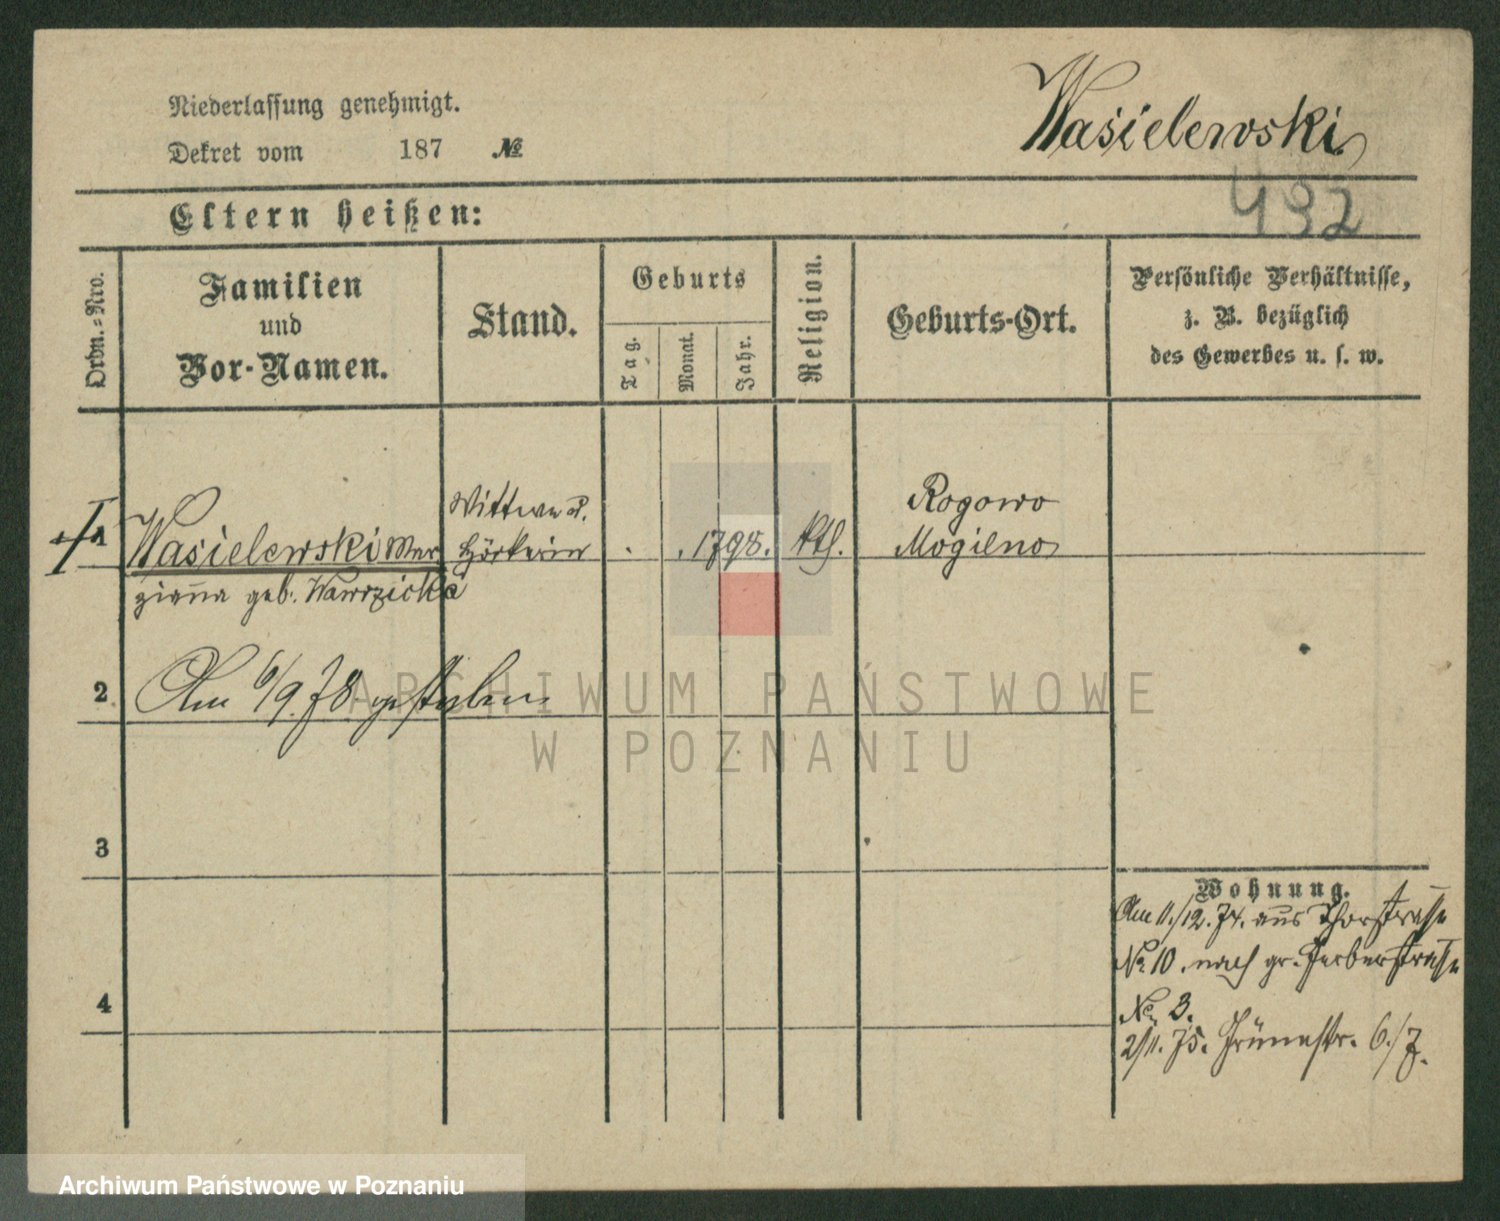 Niederlassung genehmigt.
Dekret vom 187 №
Wasielewski
492
Eltern heißen:
Ordn.-Nro.
Familien
und
Vor-Namen.
Stand.
Geburts
Tag.
Monat.
Jahr.
Religion.
Geburts-Ort.
Persönliche Verhältnisse,
z. B. bezüglich
des Gewerbes u. s. w.
1
Wasielewski Mar
zianna geb. Wawrzicka
Wittwe u.
Hökerin
1798.
kth.
Rogowo
Mogilno
2
Am 6/9. 78. gestorben
3
4
Wohnung.
Am 11./12. 74. aus Thorstrasse
No 10. nach gr. Gerberstrasse
No 3.
2/11. 75. Grünestr. 6./7.
ARCHIWUM PAŃSTWOWE
W POZNANIU
Archiwum Państwowe w Poznaniu